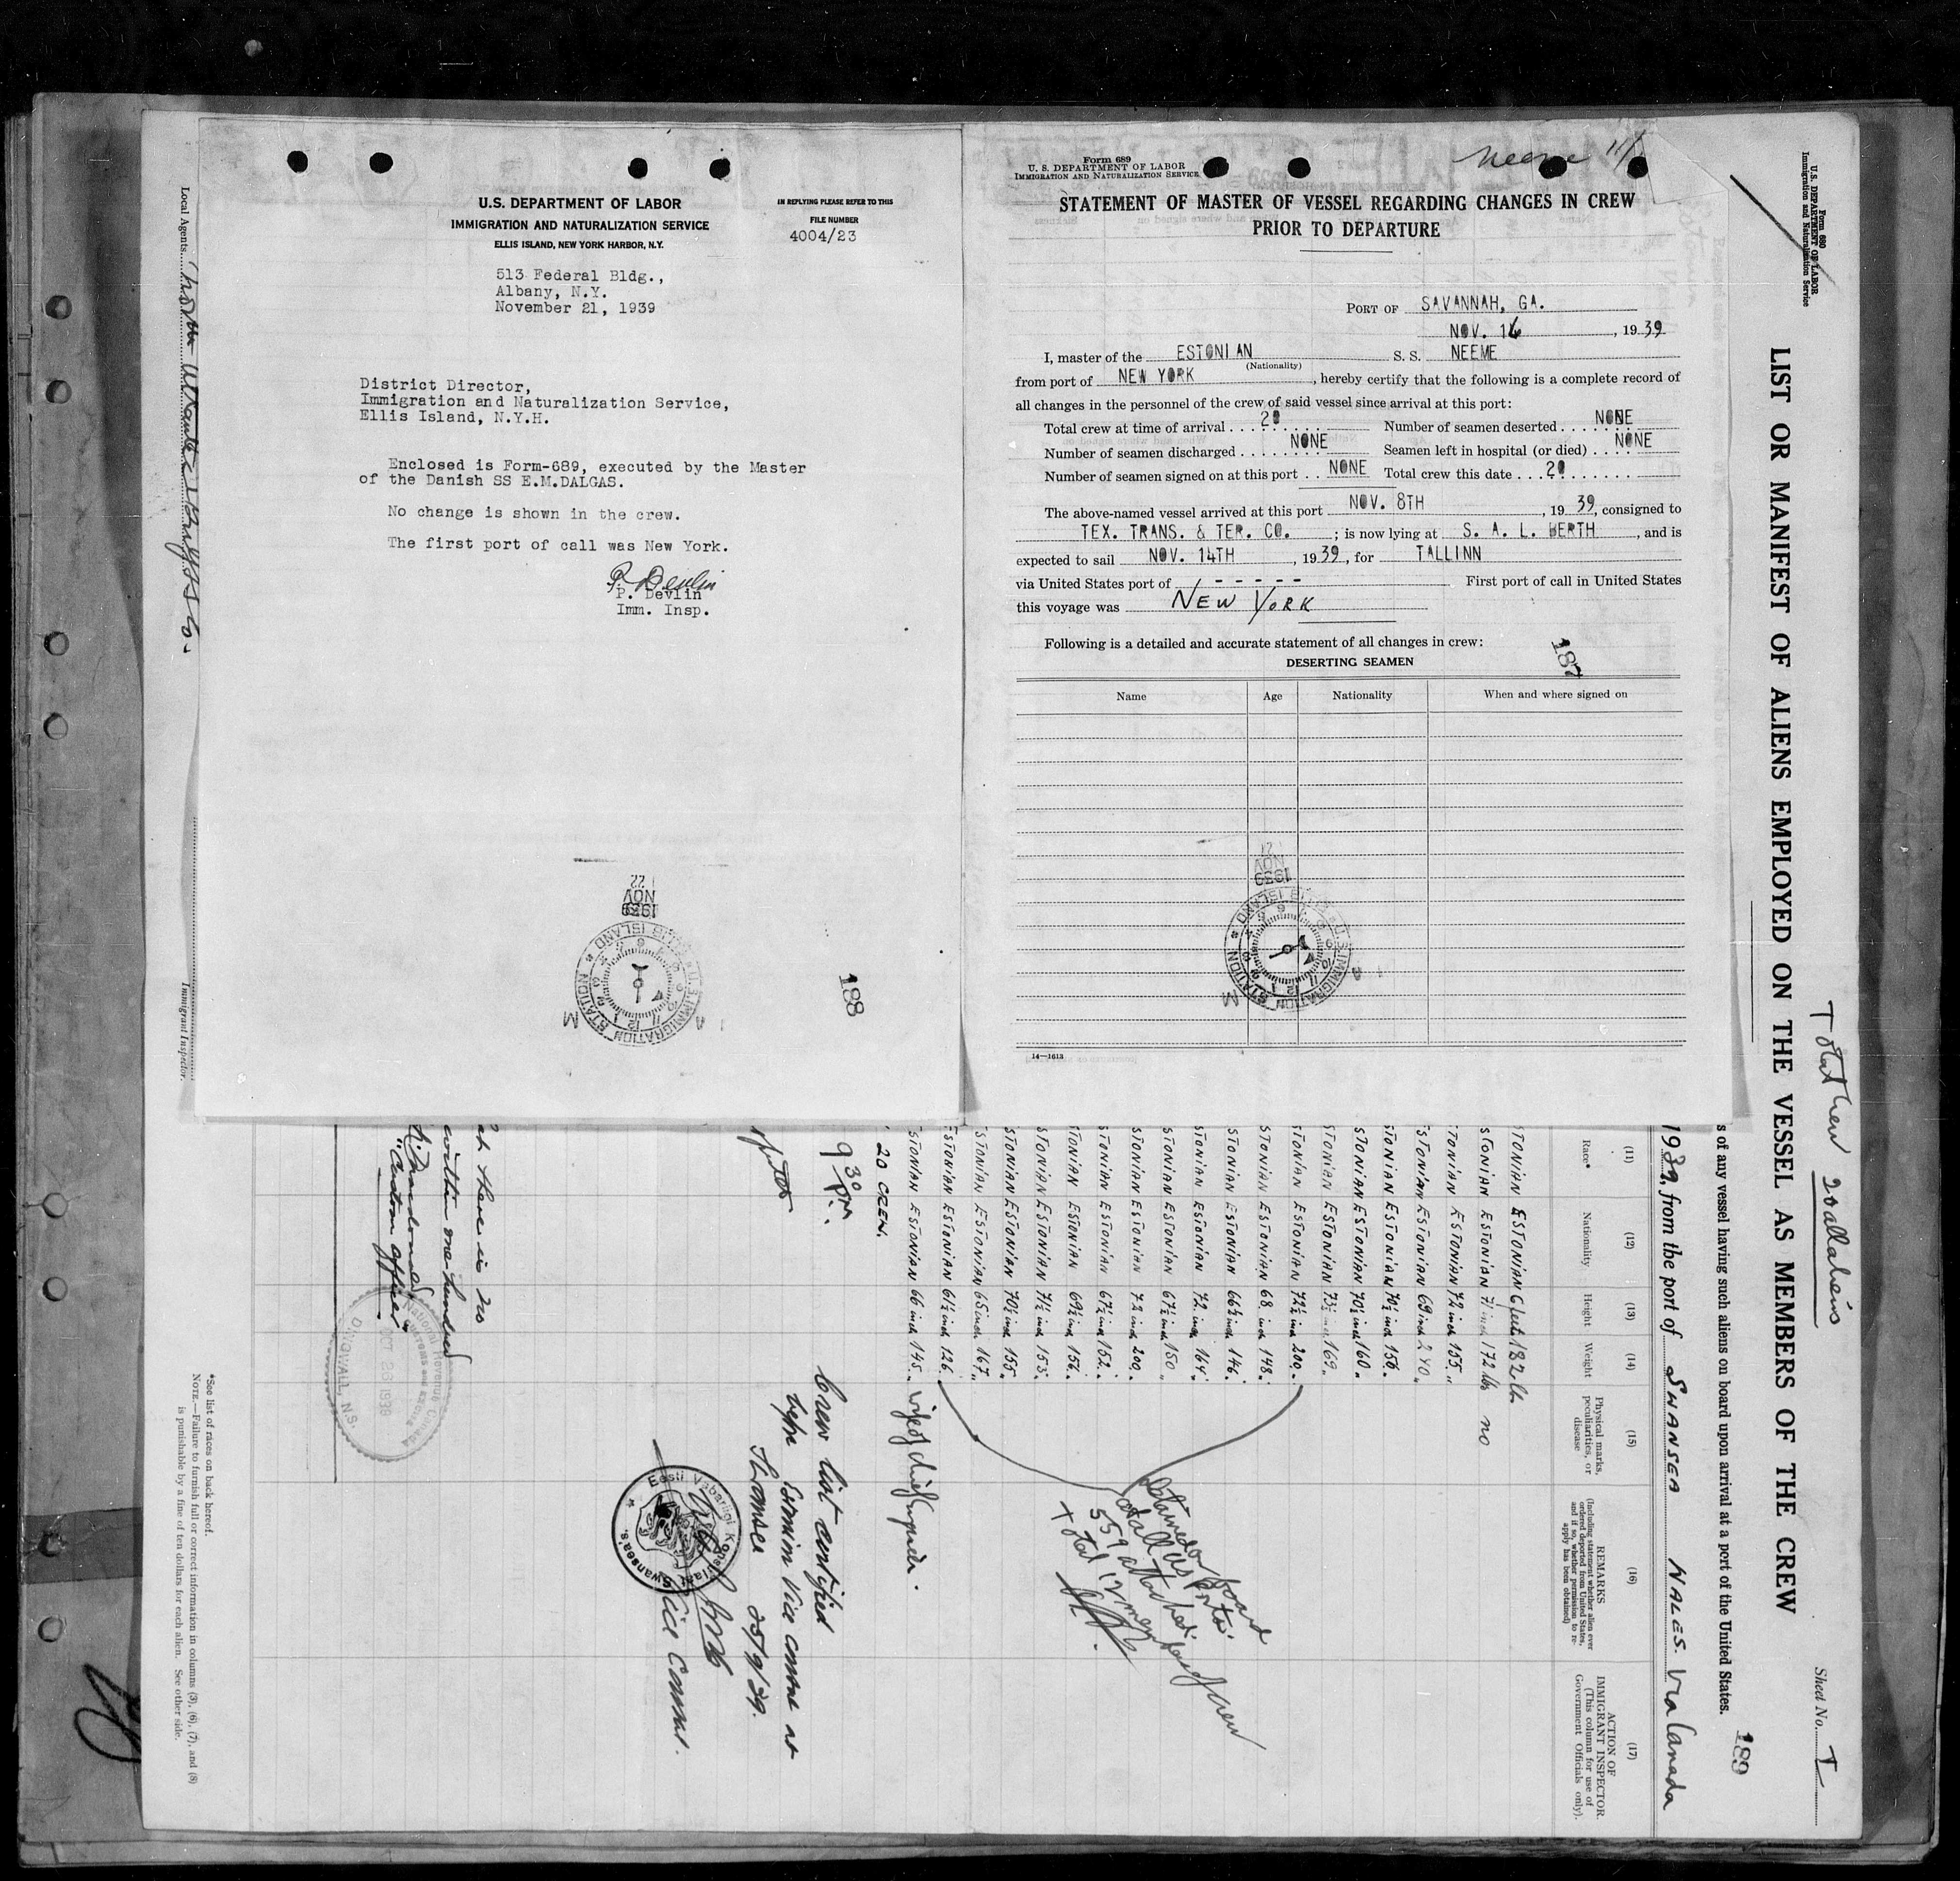 U.S. DEPARTMENT OF LABOR
IMMIGRATION AND NATURALIZATION SERVICE
ELLIS ISLAND, NEW YORK HARBOR, N.Y.
IN REPLYING PLEASE REFER TO THIS
FILE NUMBER
4004/23
513 Federal Bldg.,
Albany, N.Y.
November 21, 1939
District Director,
Immigration and Naturalization Service,
Ellis Island, N.Y.H.
Enclosed is Form-689, executed by the Master
of the Danish SS E.M.DALGAS.
No change is shown in the crew.
The first port of call was New York.
P. Devlin
P. Devlin
Imm. Insp.
1939
NOV
22
U.S. IMMIGRATION STATION
ELLIS ISLAND
188
Form 689
U. S. DEPARTMENT OF LABOR
IMMIGRATION AND NATURALIZATION SERVICE
Neeme 11/
STATEMENT OF MASTER OF VESSEL REGARDING CHANGES IN CREW
PRIOR TO DEPARTURE
PORT OF SAVANNAH, GA.
NOV. 16, 1939
I, master of the ESTONIAN S. S. NEEME
(Nationality)
from port of NEW YORK, hereby certify that the following is a complete record of
all changes in the personnel of the crew of said vessel since arrival at this port:
Total crew at time of arrival 20 Number of seamen deserted NONE
Number of seamen discharged NONE Seamen left in hospital (or died) NONE
Number of seamen signed on at this port NONE Total crew this date 20
The above-named vessel arrived at this port NOV. 8TH, 1939, consigned to
TEX. TRANS. & TER. CO.; is now lying at S. A. L. BERTH, and is
expected to sail NOV. 14TH, 1939, for TALLINN
via United States port of - - - - - First port of call in United States
this voyage was NEW YORK
Following is a detailed and accurate statement of all changes in crew:
187
DESERTING SEAMEN
Name Age Nationality When and where signed on
1939
NOV
21
U.S. IMMIGRATION STATION
ELLIS ISLAND
14—1613
Form 680
U.S. DEPARTMENT OF LABOR
Immigration and Naturalization Service
Total Crew 20 all aliens
Shed No. I
LIST OR MANIFEST OF ALIENS EMPLOYED ON THE VESSEL AS MEMBERS OF THE CREW
189
s of any vessel having such aliens on board upon arrival at a port of the United States.
1939, from the port of SWANSEA WALES. Via Canada
(11) (12) (13) (14) (15) (16) (17)
Race* Nationality Height Weight
Physical marks, peculiarities, or disease
REMARKS
(Including statement whether alien ever ordered deported from United States, and if so, whether permission to reapply has been obtained)
ACTION OF IMMIGRANT INSPECTOR
(This column for use of Government Officials only).
STONIAN ESTONIAN 6 feet 182 lb.
STONIAN ESTONIAN 71 inch 172 lbs no
TONIAN ESTONIAN 72 inch 155 "
STONIAN ESTONIAN 69 inch 240 "
STONIAN ESTONIAN 70½ inch 156 "
STONIAN ESTONIAN 70½ inch 160 "
STONIAN ESTONIAN 73½ inch 169 "
STONIAN ESTONIAN 72½ inch 200 "
STONIAN ESTONIAN 68 inch 148 "
STONIAN ESTONIAN 66½ inch 146 "
STONIAN ESTONIAN 72 inch 164 "
STONIAN ESTONIAN 67½ inch 150 "
STONIAN ESTONIAN 72 inch 200 "
STONIAN ESTONIAN 67½ inch 152 "
STONIAN ESTONIAN 69½ inch 156 "
STONIAN ESTONIAN 71½ inch 153 "
STONIAN ESTONIAN 70½ inch 155 "
STONIAN ESTONIAN 65 inch 167 "
ESTONIAN ESTONIAN 61½ inch 126 "
STONIAN ESTONIAN 66 inch 145 " wife of chief engineer.
20 CREW.
Detained on board
at all US ports.
559 attached.
Total 17 members of crew
9 30 pm.
Crew list certified
before Estonian Vice consul at
Swansea 25/9/39.
Vice Consul.
Eesti Vabariigi Konsulaat
Swansea's
there is no
within one hundred
"Custom officer"
National Revenue Canada
CUSTOMS AND EXCISE
OCT 26 1939
DINGWALL, N.S.
Local Agents
Immigrant Inspector.
*See list of races on back hereof.
NOTE.—Failure to furnish full or correct information in columns (3), (6), (7), and (8)
is punishable by a fine of ten dollars for each alien. See other side.